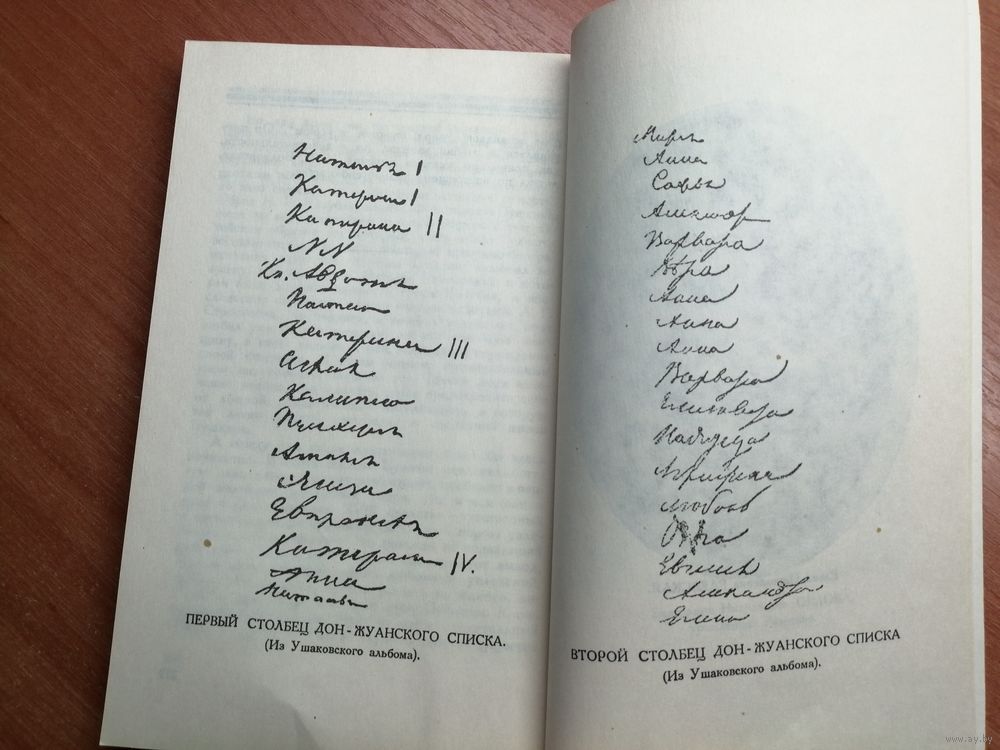 Наталья I
Катерина I
Катерина II
NN
Кн. Авдотия
Настасья
Катерина III
Аглая
Калипсо
Пульхерия
Амалия
Элиза
Евпраксея
Катерина IV.
Анна
Наталья
ПЕРВЫЙ СТОЛБЕЦ ДОН-ЖУАНСКОГО СПИСКА.
(Из Ушаковского альбома).
Мария
Анна
Софья
Александра
Варвара
Вѣра
Анна
Анна
Анна
Варвара
Елисавета
Надежда
Аграфена
Любовь
Ольга
Евгения
Александра
Елена
ВТОРОЙ СТОЛБЕЦ ДОН-ЖУАНСКОГО СПИСКА
(Из Ушаковского альбома).
www.ay.by